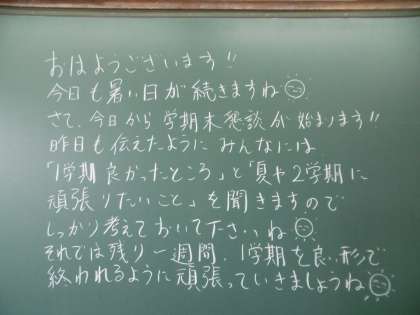 おはようございます!!
今日も暑い日が続きますね
さて、今日から学期末懇談が始まります!!
昨日も伝えたように みんなには
「1学期良かったところ」と「夏や2学期に
頑張りたいこと」を聞きますので
しっかり考えておいて下さいね
それでは残り一週間、1学期を良い形で
終われるように頑張っていきましょうね